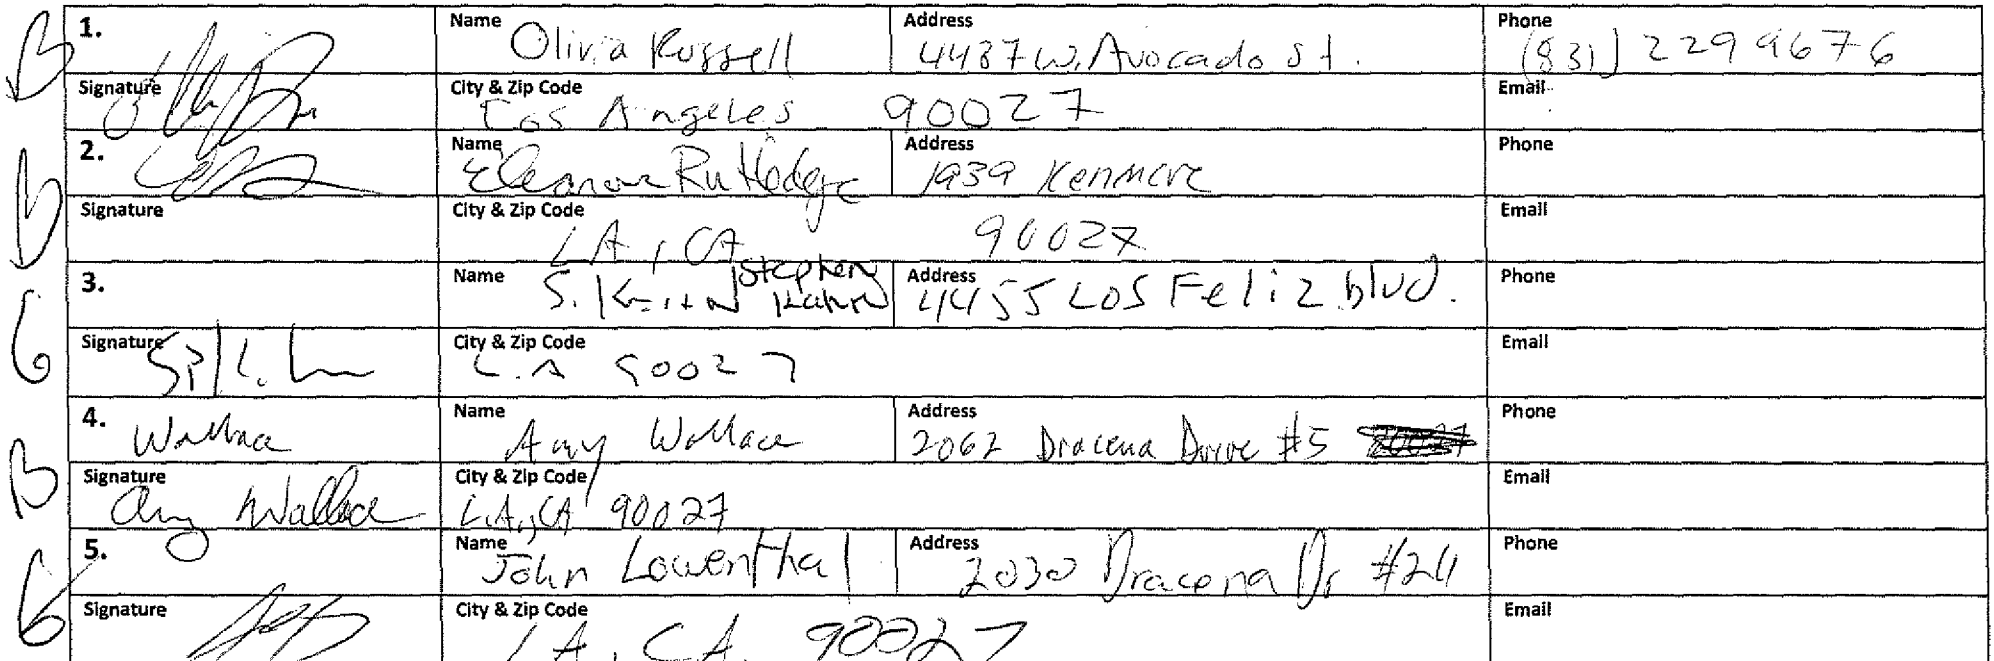 1. Name Olivia Russell Address 4437 W. Avocado St. Phone (831) 229 9676
Signature City & Zip Code Los Angeles 90027 Email
2. Name Eleanore Rutledge Address 1939 Kenmore Phone
Signature City & Zip Code LA, CA 90027 Email
3. Name S. Stephen Kahn Address 4455 Los Feliz blvd. Phone
Signature City & Zip Code L.A 90027 Email
4. Wallace Name Amy Wallace Address 2062 Dracena Drive #5 Phone
Signature Amy Wallace City & Zip Code L.A., CA 90027 Email
5. Name John Lowenthal Address 2030 Dracena Dr Phone
Signature City & Zip Code LA, CA 90027 Email